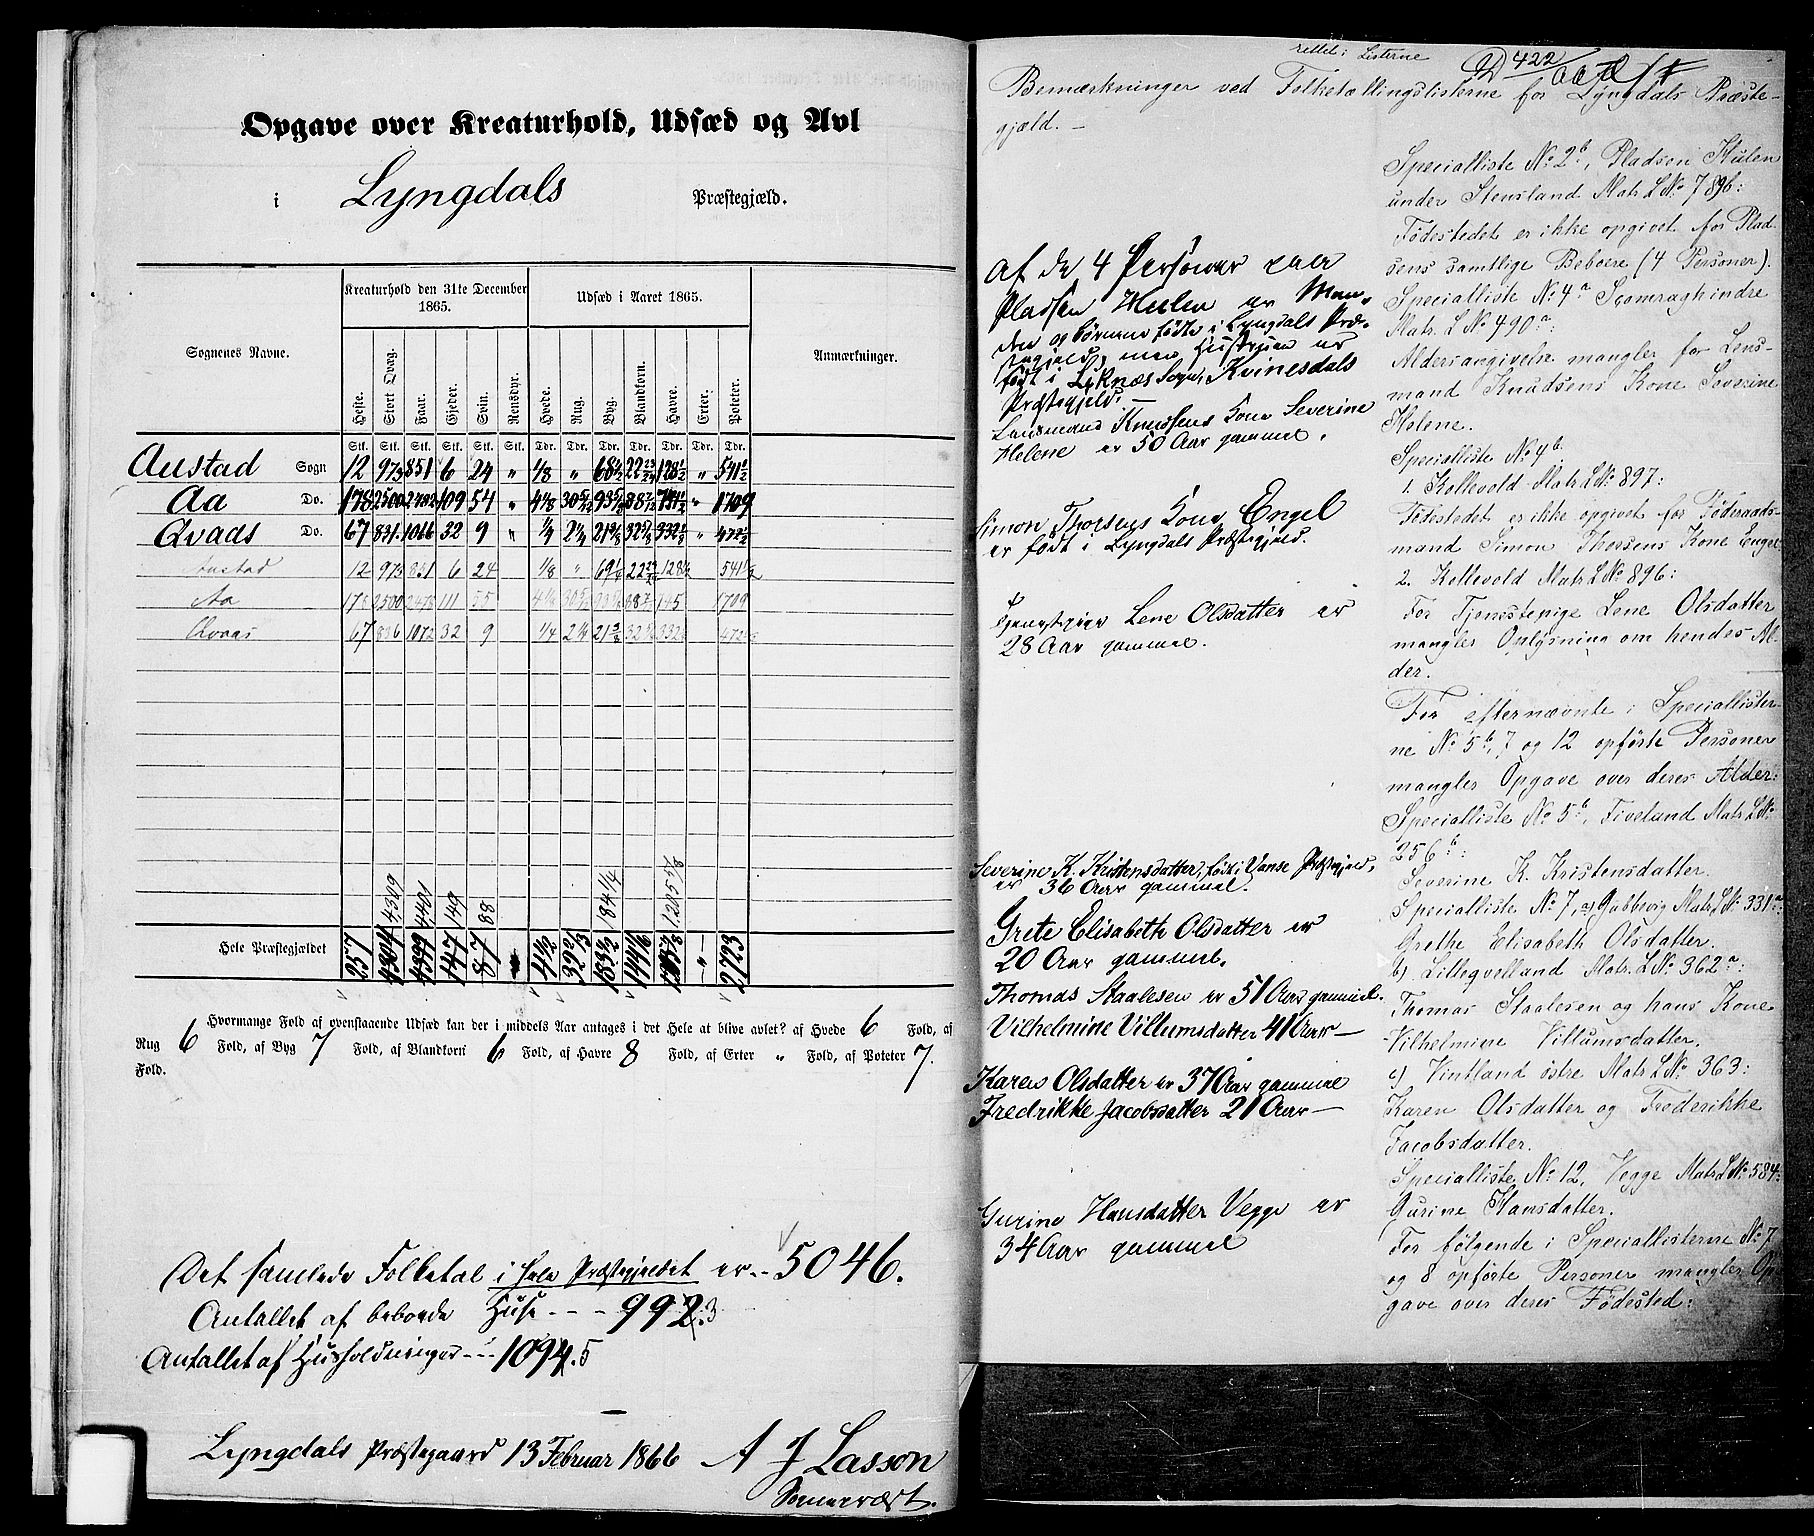 Opgave over Kreaturhold, Udsæd og Avl
i Lyngdals Præstegjæld.
Sognenes Navne.
Kreaturhold den 31te December 1865.
Udsæd i Aaret 1865.
Anmærkninger.
Heste. Stort Qvæg. Faar. Gjeder. Svin. Rensdyr. Hvede. Rug. Byg. Blandkorn. Havre. Erter. Poteter.
Stk. Stk. Stk. Stk. Stk. Stk. Tdr. Tdr. Tdr. Tdr. Tdr. Tdr. Tdr.
Austad Sogn 12 973 851 6 24 " 1/8 " 68 1/2 " 541 1/2
Aa Do. 178 2500 109 54 " 4 1/8 " 1709
Qvads Do. 67 831 1066 32 9 " 1/4 2 1/4 " 472 1/2
Austad 12 973 851 6 24 1/8 " 541 1/2
Aa 2500 111 55 145 1709
67 1072 32 9 1/4
4309 4401 149 88 184 1/4 1205 5/8
Hele Præstegjældet 257 4304 147 87 4 1/2 " 2723
Hvormange Fold af ovenstaaende Udsæd kan der i middels Aar antages i det Hele at blive avlet? af Hvede 6 Fold, af
Rug 6 Fold, af Byg 7 Fold, af Blandkorn 6 Fold, af Havre 8 Fold, af Erter " Fold, af Poteter 7.
Fold.
Det samlede Folketal i hele Præstegjeldet er -- 5046.
Antallet af beboede Huse - - - 992.3
Antallet af Husholdninger --- 1094.5
Lyngdals Præstegaard 13 Februar 1866 A J Lasson
Sognepræst.
rettet i Listerne
422
Bemærkninger ved Folketællingslisterne for Lyngdals Præste-
gjæld. -
Af de 4 Personer paa
Pladsen Hulen er Man-
den og børnene fødte i Lyngdals Præ-
stegjeld, men Hustruen er
født i Lyknæs Sogn, Kvinesdals
Præstegjeld. -
Lensmand Knudsens Kone Severine
Helene er 50 Aar gammel.
Simon Thorsens Kone Engel
er født i Lyngdals Præstegjeld.
Tjenestepige Lene Olsdatter er
28 Aar gammel.
Severine K. Kristensdatter, født i Vanse Præstegjeld,
er 36 Aar gammel.
Grete Elisabeth Olsdatter er
20 Aar gammel.
Thomas Staalesen er 51 Aar gammel.
Vilhelmine Villumsdatter 41 Aar -
Karen Olsdatter er 37 Aar gammel
Fredrikke Jacobsdatter 21 Aar -
Gurine Hansdatter Vegge er
34 Aar gammel
Specialliste No. 2b, Pladsen Hulen
under Stensland Matr. L No. 789b:
Fødestedet er ikke opgivet for Plad-
sens samtlige Beboere (4 Personer).
Specialliste No. 4a Skomraghindre
Matr. L No. 490a:
Aldersangivelse mangler for Lens-
mand Knudsens Kone Severine
Helene.
Specialliste No. 4b.
1. Kollevold Matr. L No. 897:
Fødestedet er ikke opgivet for Fødraads-
mand Simon Thorsens Kone Engel
2. Kollevold Matr. L No. 896:
For Tjenestepige Lene Olsdatter
mangler Oplysning om hendes Al-
der.
For efternævnte i Speciallister-
ne No. 5b, 7 og 12 opførte Personer
mangler Opgave over deres Alder:
Specialliste No. 5b, Fiveland Matr. L No.
256b:
Severine K. Kristensdatter.
Specialliste No. 7, a) Gabbevig Matr. L No. 331a:
Grethe Elisabeth Olsdatter.
b) Lillegvelland Matr. L No. 362a:
Thomas Staalesen og hans Kone
Vilhelmine Villumsdatter.
c) Vintland østre Matr. L No. 363:
Karen Olsdatter og Frederikke
Jacobsdatter.
Specialliste No. 12, Vegge Matr. L No. 584:
Gurine Hansdatter.
For følgende i Speciallisterne No. 7
og 8 opførte Personer mangler Op-
gave over deres Fødested: